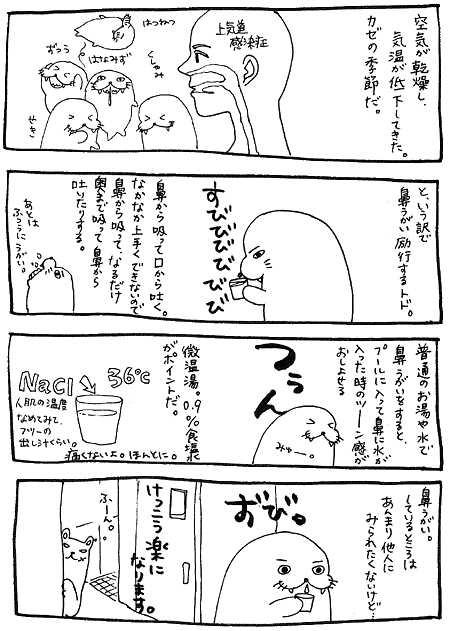 空気が乾燥し、
気温が低下してきた。
カゼの季節だ。
上気道
感染症
はつねつ
くしゃみ
はなみず
ずつう
せき
と、いう訳で
鼻うがい励行するトド。
すびびびびび
鼻から吸って口から吐く。
なかなか上手くできないので
鼻から吸って、なるだけ
奥まで吸って鼻から
吐いたりする。
あとは
ふつうにうがい。
普通のお湯や水で
鼻うがいをすると
プールに入って鼻に水が
入った時のツーン感が
おしよせる
つぅん
みゅー。
微温湯。0.9
%食塩水
がポイントだ。
NaCl
36℃
人肌の温度
なめてみて、
フツーの
出し汁くらい。
痛くないよ。ほんとに。
鼻うがい。
しているところは
あんまり他人に
みられたくないけど…
おび。
けっこう楽に
なります。
ふーん。